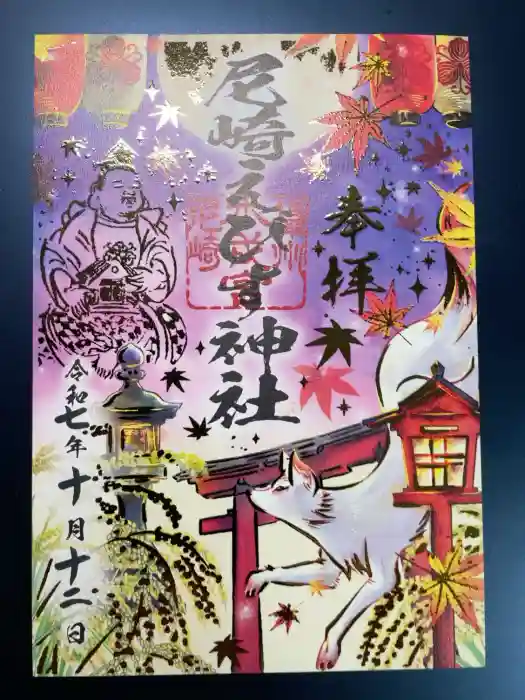 奉拝
尼崎えびす神社
令和七年十月十二日